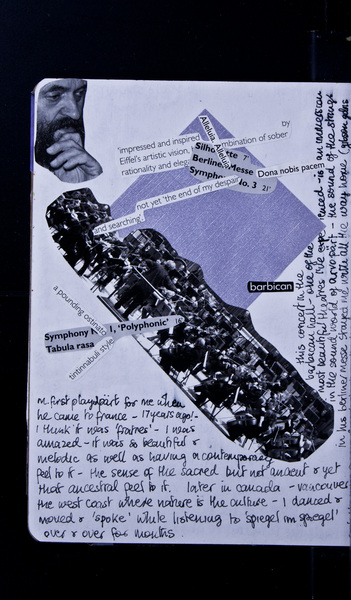 by
'impressed and inspired
combination of sober
Eiffel's artistic vision,
rationality and eleg
Alleluia, Alleluia
Silho te 7'
Berline Messe
Symph No. 3 21'
Dona nobis pacem
not yet 'the end of my despair
and searching'
barbican
a pounding ostinato
Symphony N 1, 'Polyphonic' 16
Tabula rasa
tintinnabuli style
this concert in the
barbican hall - one of the
most beautiful things i've experienced - is an american
in the sound world of arvo pärt - the sound of the strings
in his berliner messe stayed me with all the way home
m first played pärt for me when
he came to france - 17 years ago! -
i think it was 'fratres' - i was
amazed - it was so beautiful &
melodic as well as having a contemporary
feel to it - the sense of the sacred but not ancient & yet
that ancestral feel to it. later in canada - vancouver
the west coast where nature is the culture - i danced &
moved & 'spoke' while listening to 'spiegel im spiegel'
over & over for months